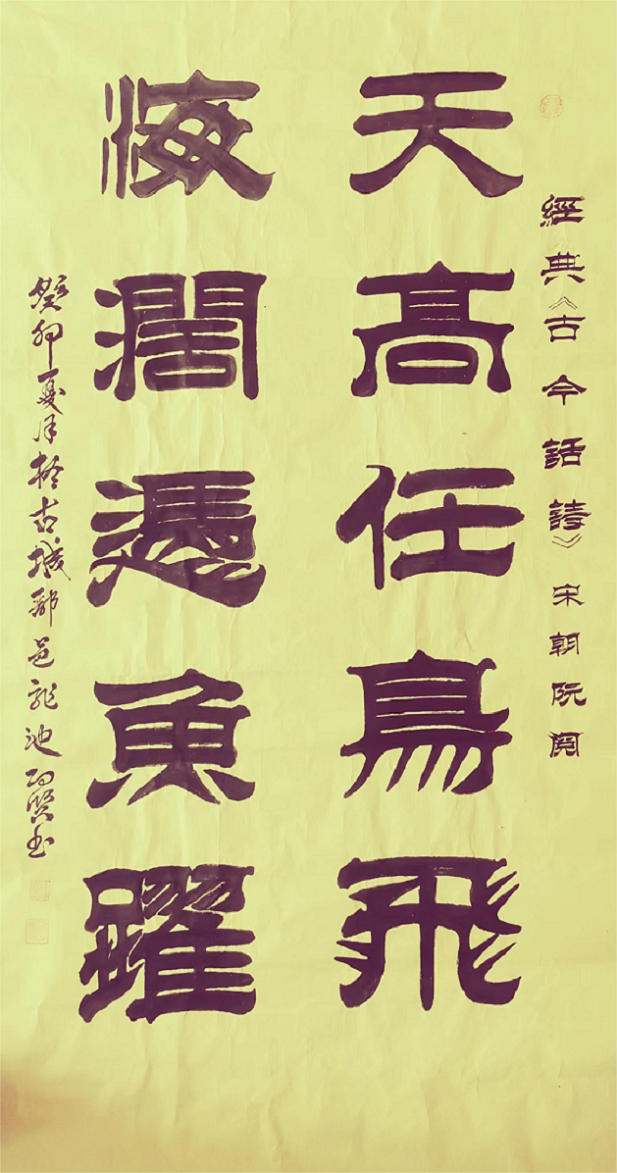 經典《古今話詩》宋朝阮閱
天高任鳥飛
海闊憑魚躍
癸卯夏月於古城鄀邑龍池賢書